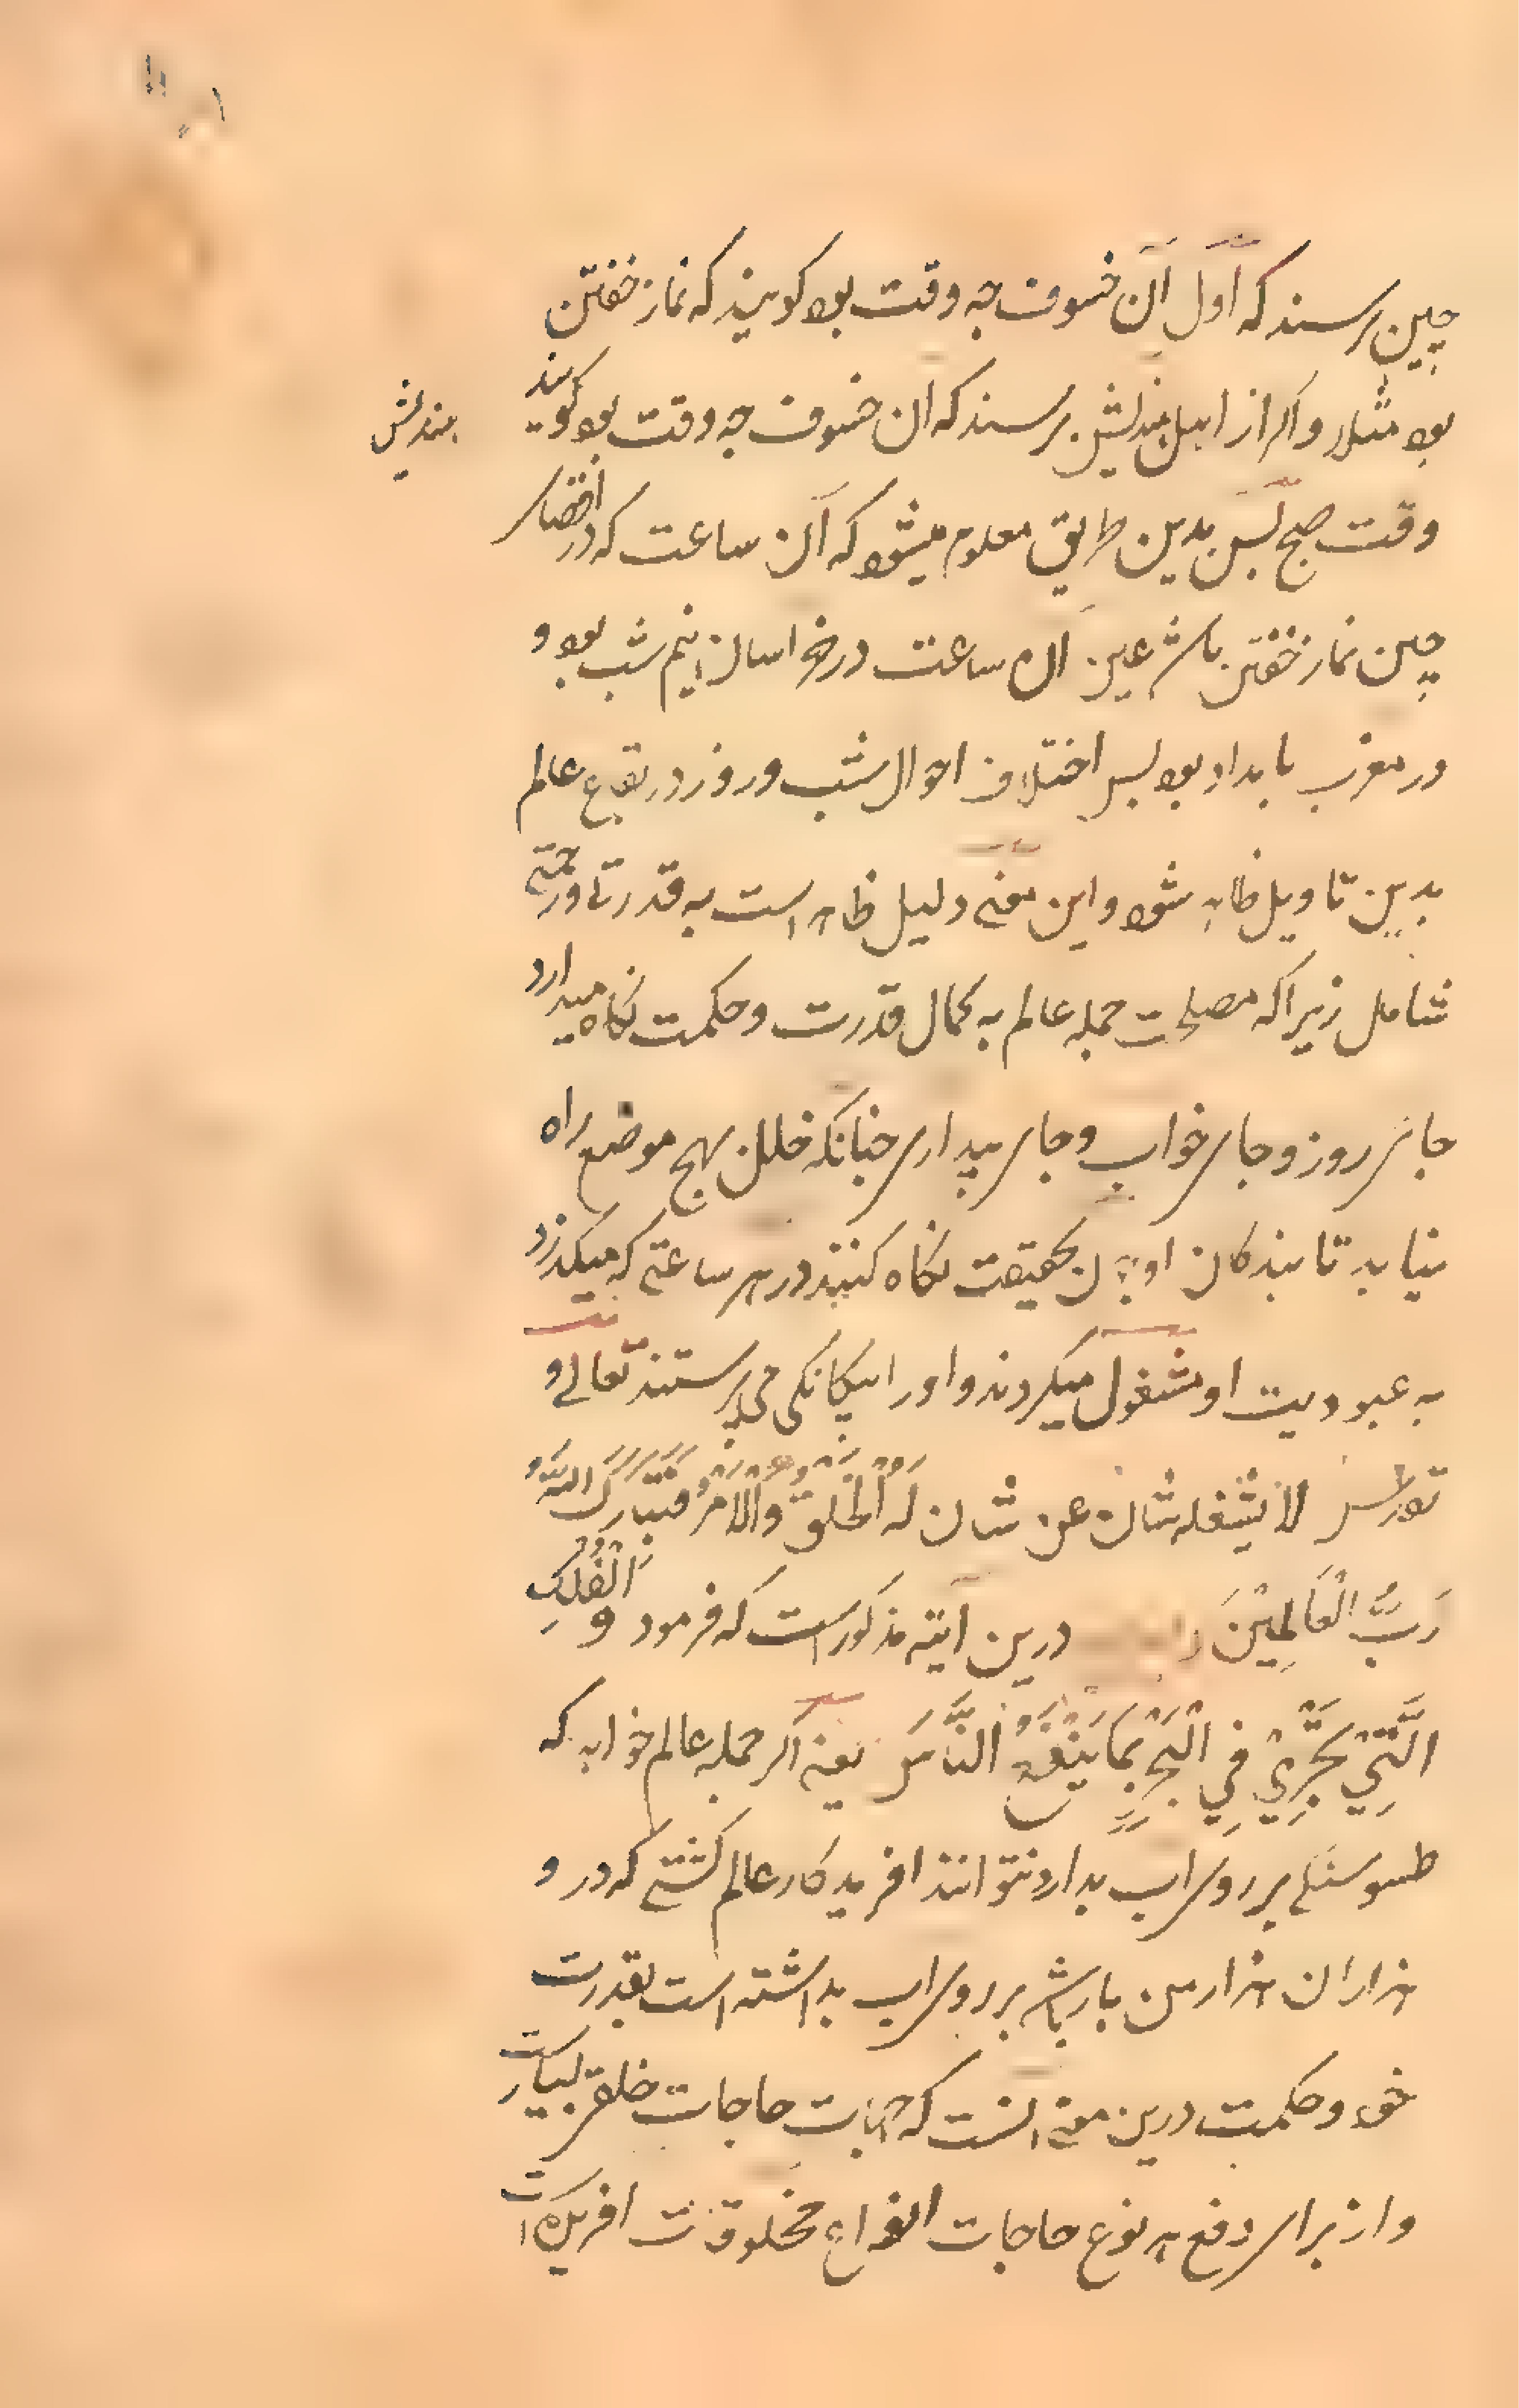 چین پرسند که اول آن خسوف چه وقت بود کویند که نماز خفتن
بود مثلا و اکر از اهل بندلیش پرسند که آن خسوف چه وقت بود کویند
بندلیش
وقت صبح پس بدین طریق معلوم میشود که آن ساعت که در اقصای
چین نماز خفتن باشد عین آن ساعت در خراسان نیم شب بود و
در مغرب بامداد بود پس اختلاف احوال شب و روز در بقاع عالم
بدین تاویل ظاهر شود و این معنی دلیل ظاهر است به قدرتی و رحمتی
شامل زیرا که مصلحت جمله عالم به کمال قدرت و حکمت نکاه میدارد
جای روز و جای خواب و جای بیداری چنانکه خلل بهیچ موضع راه
نیابد تا بندکان او بحقیقت نکاه کنند در هر ساعتی که میکذرد
به عبودیت او مشغول میکردند و او را بیکانکی می پرستند تعالی و
تقدس لا یشغله شان عن شان لَهُ الْخَلْقُ وَالْاَمْرُ فَتَبَارَكَ اللهُ
رَبُّ الْعَالَمِیْنَ درین آیته مذکور است که فرمود وَالْفُلْكِ
الَّتِیْ تَجْرِیْ فِی الْبَحْرِ بِمَا یَنْفَعُ النَّاسَ یعنی اکر جمله عالم خواهد که
طسو سنکی بر روی آب بدارد نتوانند افریدکار عالم کشتی که در و
هزاران هزار من بار باشد بر روی آب بداشته است بقدرت
خود و حکمت درین معنی آنست که حاجات خلق بسیار است
و از برای دفع هر نوع حاجات انواع مخلوقات افریده است